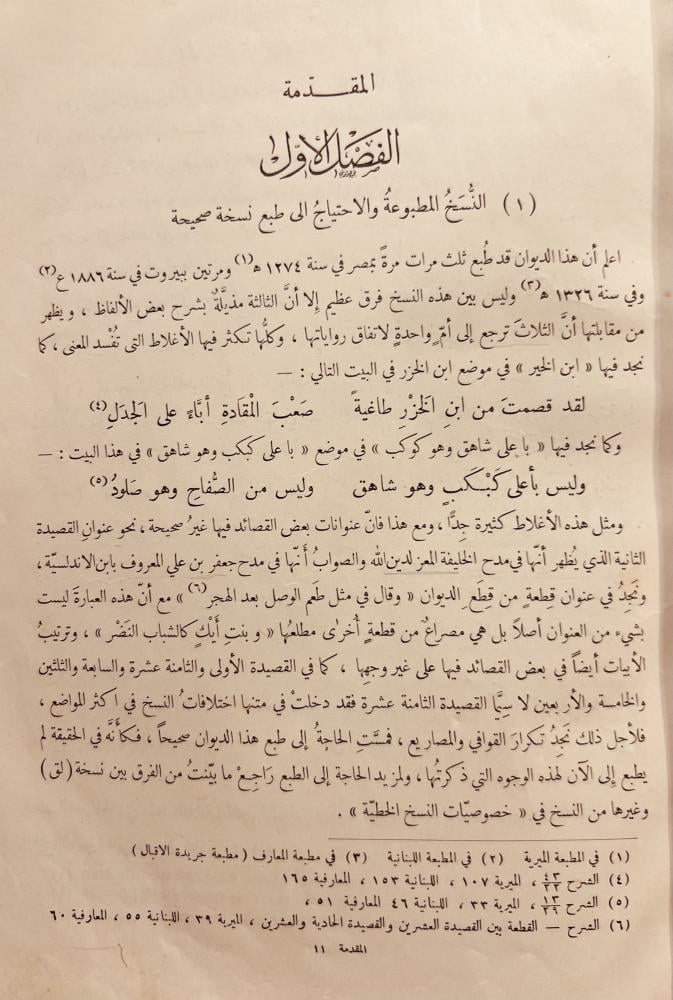 المقـــدّمة
الفصل الاول
(١) النُّسَخُ المطبوعةُ والاحتياجُ الى طبع نسخة صحيحة
اعلم أن هذا الديوان قد طُبع ثلث مرات مرةً بمصر في سنة ١٢٧٤ ﻫ(١) ومرتين ببيروت في سنة ١٨٨٦ ع(٢)
وفي سنة ١٣٢٦ ﻫ(٣) وليس بين هذه النسخ فرق عظيم إلا أنَّ الثالثة مذيلَّةٌ بشرح بعض الألفاظ ، ويظهر
من مقابلتها أنَّ الثلاثَ ترجع إلى أمّ واحدةٍ لاتفاق رواياتها ، وكلُّها تكثر فيها الأغلاط التى تُفْسد المعنى ، كما
نجد فيها « ابن الخير » في موضع ابن الخزر في البيت التالي : —
لقد قصمتَ من ابنِ الخَزْرِ طاغيةً صَعْبَ الْمقَادةِ أبَّاءً على الجَدلِ(٤)
وكما نجد فيها « باعلى شاهق وهو كوكب » في موضع « باعلى كبكب وهو شاهق » في هذا البيت : —
وليس بأعلى كَبْكَبٍ وهو شاهق وليس من الصُّفاحِ وهو صَلودُ(٥)
ومثل هذه الأغلاط كثيرة جِدًّا ، ومع هذا فانّ عنوانات بعض القصائد فيها غيرُ صحيحة ، نحو عنوانِ القصيدة
الثانية الذي يُظهر أنَّها في مدح الخليفة المعز لدين الله والصوابُ أَنَّها في مدح جعفر بن علي المعروف بابن الاندلسيّة ،
ونَجِدُ في عنوان قِطعةٍ من قِطَعِ الديوان « وقال في مثل طَعم الوصل بعد الهجر(٦) » مع أنّ هذه العبارةَ ليست
بشيء من العنوان أصلاً بل هي مصراعٌ من قطعةٍ أُخرٰى مطلعُها « و بنتِ أَيْكٍ كالشباب النَضْر » ، وترتيبُ
الأبيات أيضاً في بعض القصائد فيها على غير وجهِها ، كما في القصيدة الأولى والثامنة عشرة والسابعة والثلثين
والخامسة والأر بعين لا سِيَّما القصيدة الثامنة عشرة فقد دخلتْ في متنها اختلافاتُ النسخ في اكثر المواضع ،
فلأجل ذلك نَجِدُ تكرارَ القوافي والمصاريع ، فمسَّتِ الحاجةُ إلى طبع هذا الديوان صحيحاً ، فـكأنَّه في الحقيقة لم
يطبع إلى الآن لهذه الوجوه التي ذكرتُها ، ولمزيد الحاجة إلى الطبع رَاجِعْ ما بيّنتُ من الفرق بين نسخة (لق)
وغيرها من النسخ في « خصوصيّات النسخ الخطيّة » .
(١) في المطبعة الميرية (٢) في المطبعة اللبنانية (٣) في مطبعة المعارف ( مطبعة جريدة الاقبال )
(٤) الشرح ٤٣/٢٢ ، الميرية ١٠٧ ، اللبنانية ١٥٣ ، المعارفية ١٦٥
(٥) الشرح ١٣/٣٩ ، الميرية ٣٣ ، اللبنانية ٤٦ المعارفية ٥١ ،
(٦) الشرح — القطعة بين القصيدة العشرين والقصيدة الحادية والعشرين ، الميرية ٣٩ ، اللبنانية ٥٥ ، المعارفية ٦٠
المقدمة ١١